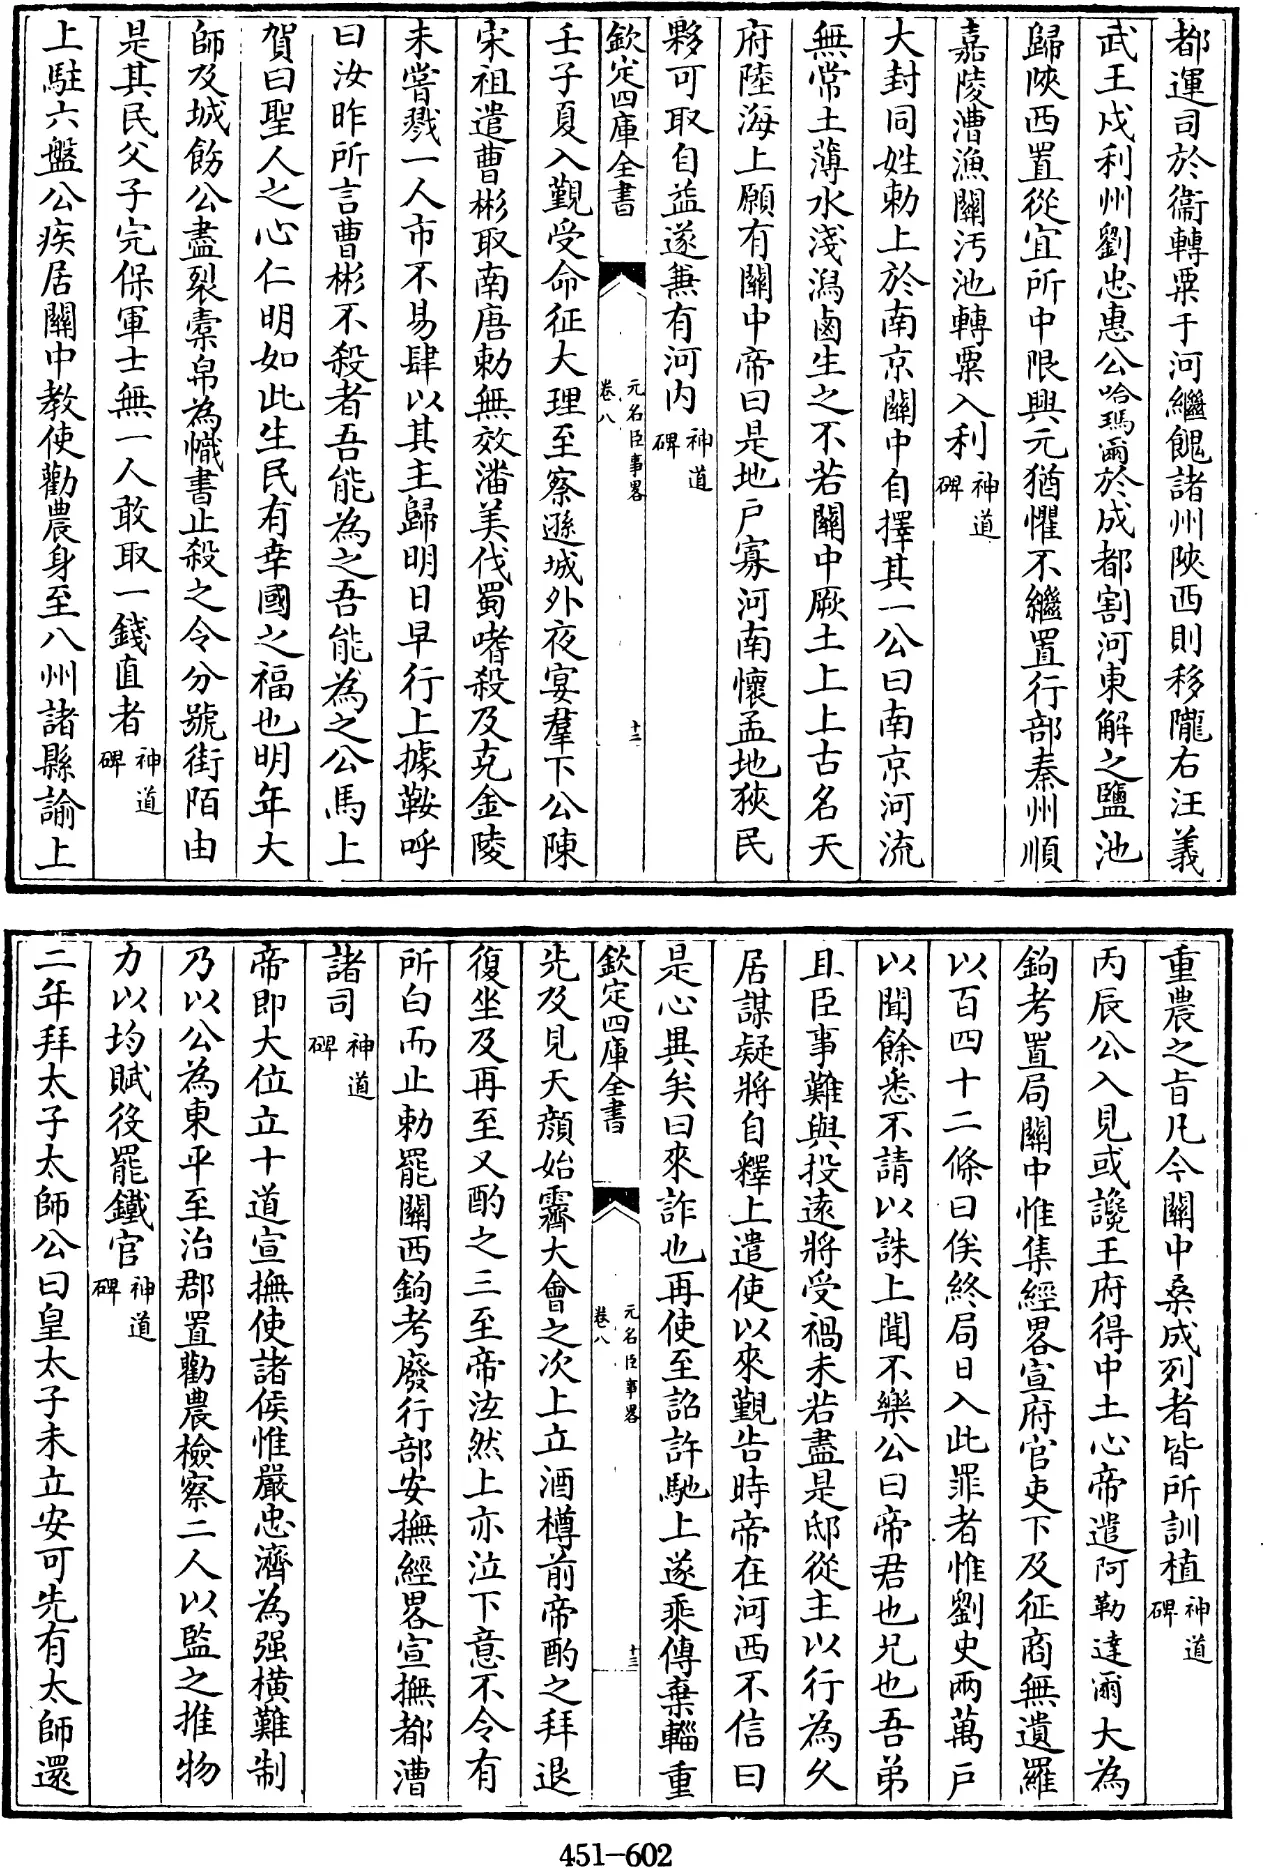 都運司於衞轉粟于河繼餽諸州陜西則移隴右汪義
武王戍利州劉忠惠公哈瑪爾於成都割河東解之鹽池
歸陜西置從宜所中限興元猶懼不繼置行部秦州順
嘉陵漕漁關沔池轉粟入利神道碑
大封同姓勅上於南京關中自擇其一公曰南京河流
無常土薄水淺潟鹵生之不若關中厥土上上古名天
府陸海上願有關中帝曰是地戶寡河南懷孟地狹民
夥可取自益遂兼有河内神道碑
欽定四庫全書 元名臣事畧 卷八 十二
壬子夏入覲受命征大理至察遜城外夜宴羣下公陳
宋祖遣曹彬取南唐勅無效潘美伐蜀嗜殺及克金陵
未嘗戮一人市不易肆以其主歸明日早行上據鞍呼
曰汝昨所言曹彬不殺者吾能為之吾能為之公馬上
賀曰聖人之心仁明如此生民有幸國之福也明年大
師及城飭公盡裂橐帛為幟書止殺之令分號街陌由
是其民父子完保軍士無一人敢取一錢直者神道碑
上駐六盤公疾居關中教使勸農身至八州諸縣諭上
重農之旨凡今關中桑成列者皆所訓植神道碑
丙辰公入見或讒王府得中土心帝遣阿勒達爾大為
鉤考置局關中惟集經畧宣府官吏下及征商無遺羅
以百四十二條曰俟終局日入此罪者惟劉史兩萬戶
以聞餘悉不請以誅上聞不樂公曰帝君也兄也吾弟
且臣事難與投遠將受禍未若盡是邸從主以行為久
居謀疑將自釋上遣使以來覲告時帝在河西不信曰
是心異矣曰來詐也再使至詔許馳上遂乘傳棄輜重
欽定四庫全書 元名臣事畧 卷八 十三
先及見天顔始霽大會之次上立酒樽前帝酌之拜退
復坐及再至又酌之三至帝泫然上亦泣下意不令有
所白而止勅罷關西鉤考廢行部安撫經畧宣撫都漕
諸司神道碑
帝即大位立十道宣撫使諸侯惟嚴忠濟為强横難制
乃以公為東平至治郡置勸農檢察二人以監之推物
力以均賦役罷鐵官神道碑
二年拜太子太師公曰皇太子未立安可先有太師還
451-602